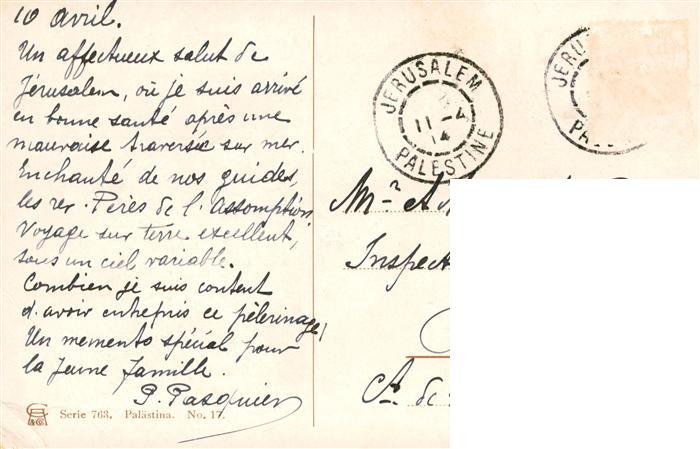 10 Avril.
Un affectueux salut de
Jérusalem, où je suis arrivé
en bonne santé après une
mauvaise traversée sur mer.
Enchanté de nos guides,
les rev. Pères de l'Assomption,
Voyage sur terre excellent,
sous un ciel variable.
Combien je suis content
d'avoir entrepris ce pèlerinage!
Un memento spécial pour
la Jeune famille.
P. Pasquier
Serie 763. Palästina. No. 17.
JERUSALEM
11-4
14
PALESTINE
JERU
PA
Mr A
Inspect
Ct. de